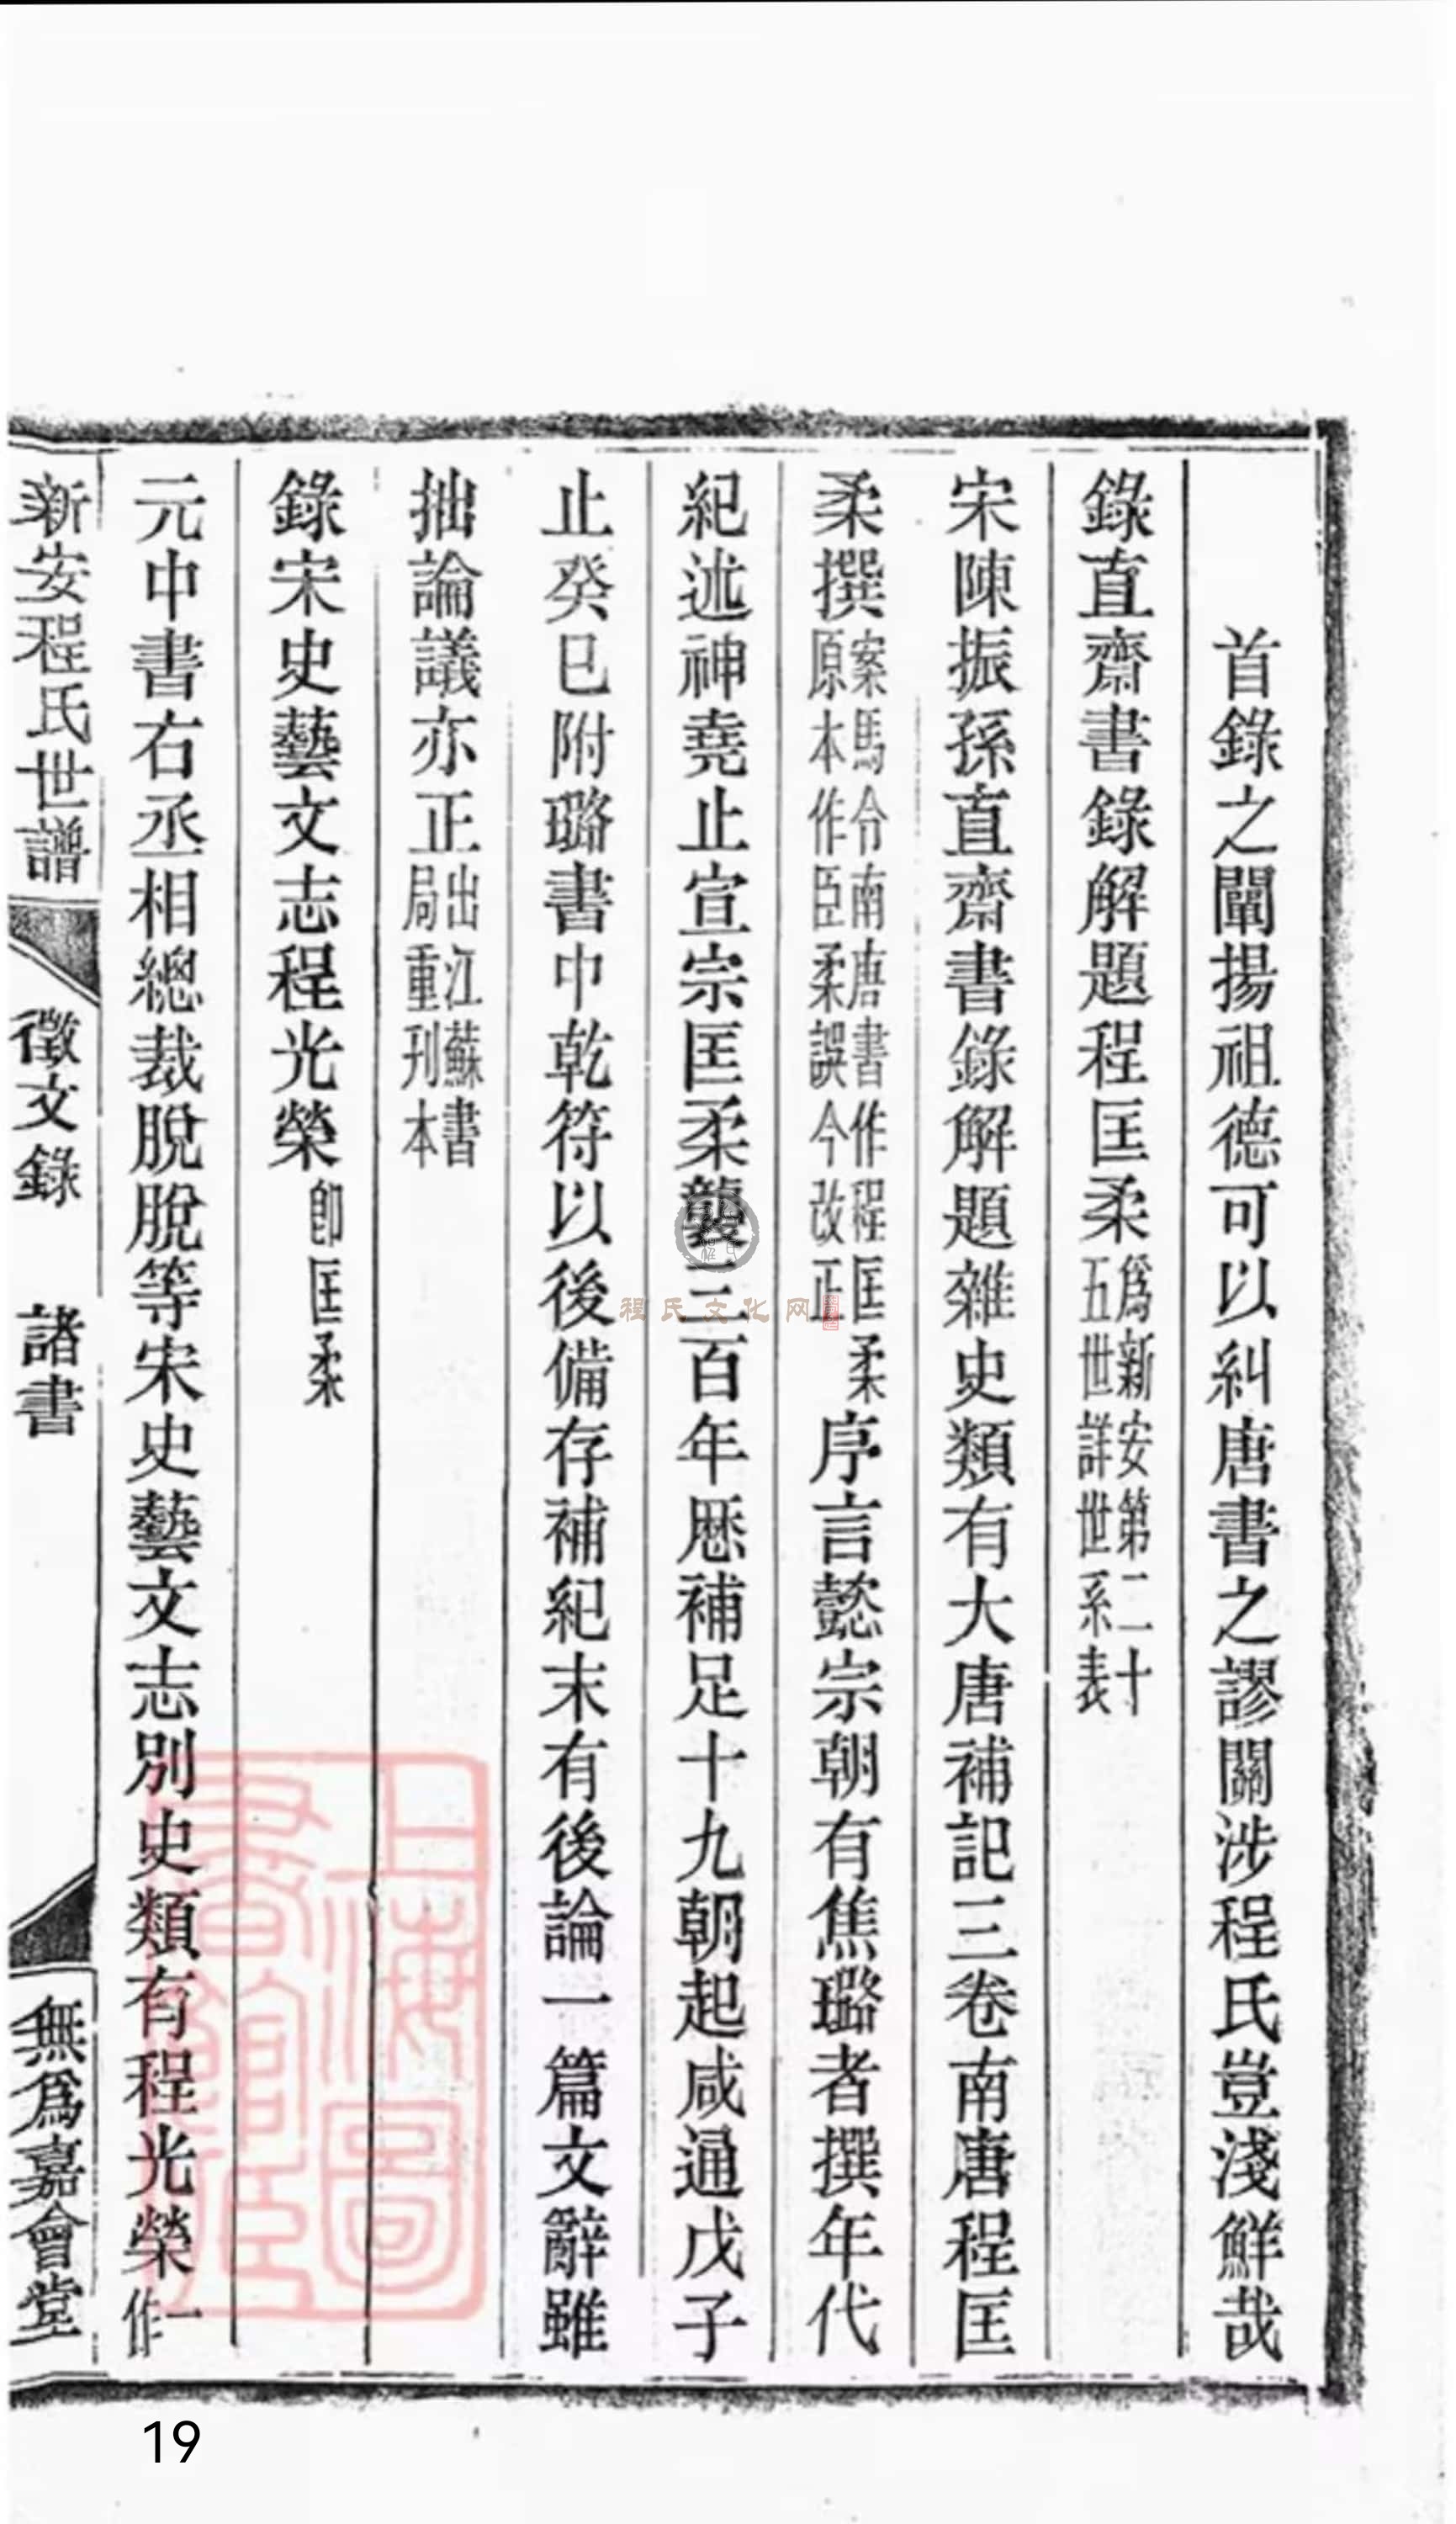 首錄之闡揚祖德可以糾唐書之謬關涉程氏豈淺鮮哉
錄直齋書錄解題程匡柔爲新安第二十五世詳世系表
宋陳振孫直齋書錄解題雜史類有大唐補記三卷南唐程匡
柔撰案馬令南唐書作程匡柔原本作臣柔誤今改正序言懿宗朝有焦璐者撰年代
紀述神堯止宣宗匡柔襲三百年厯補足十九朝起咸通戊子
止癸巳附璐書中乾符以後備存補紀末有後論一篇文辭雖
拙論議亦正出江蘇書局重刊本
錄宋史藝文志程光榮卽匡柔
元中書右丞相總裁脫脫等宋史藝文志別史類有程光榮一作
新安程氏世譜 徵文錄 諸書 無爲嘉會堂
程氏文化网
上海圖書館藏
19